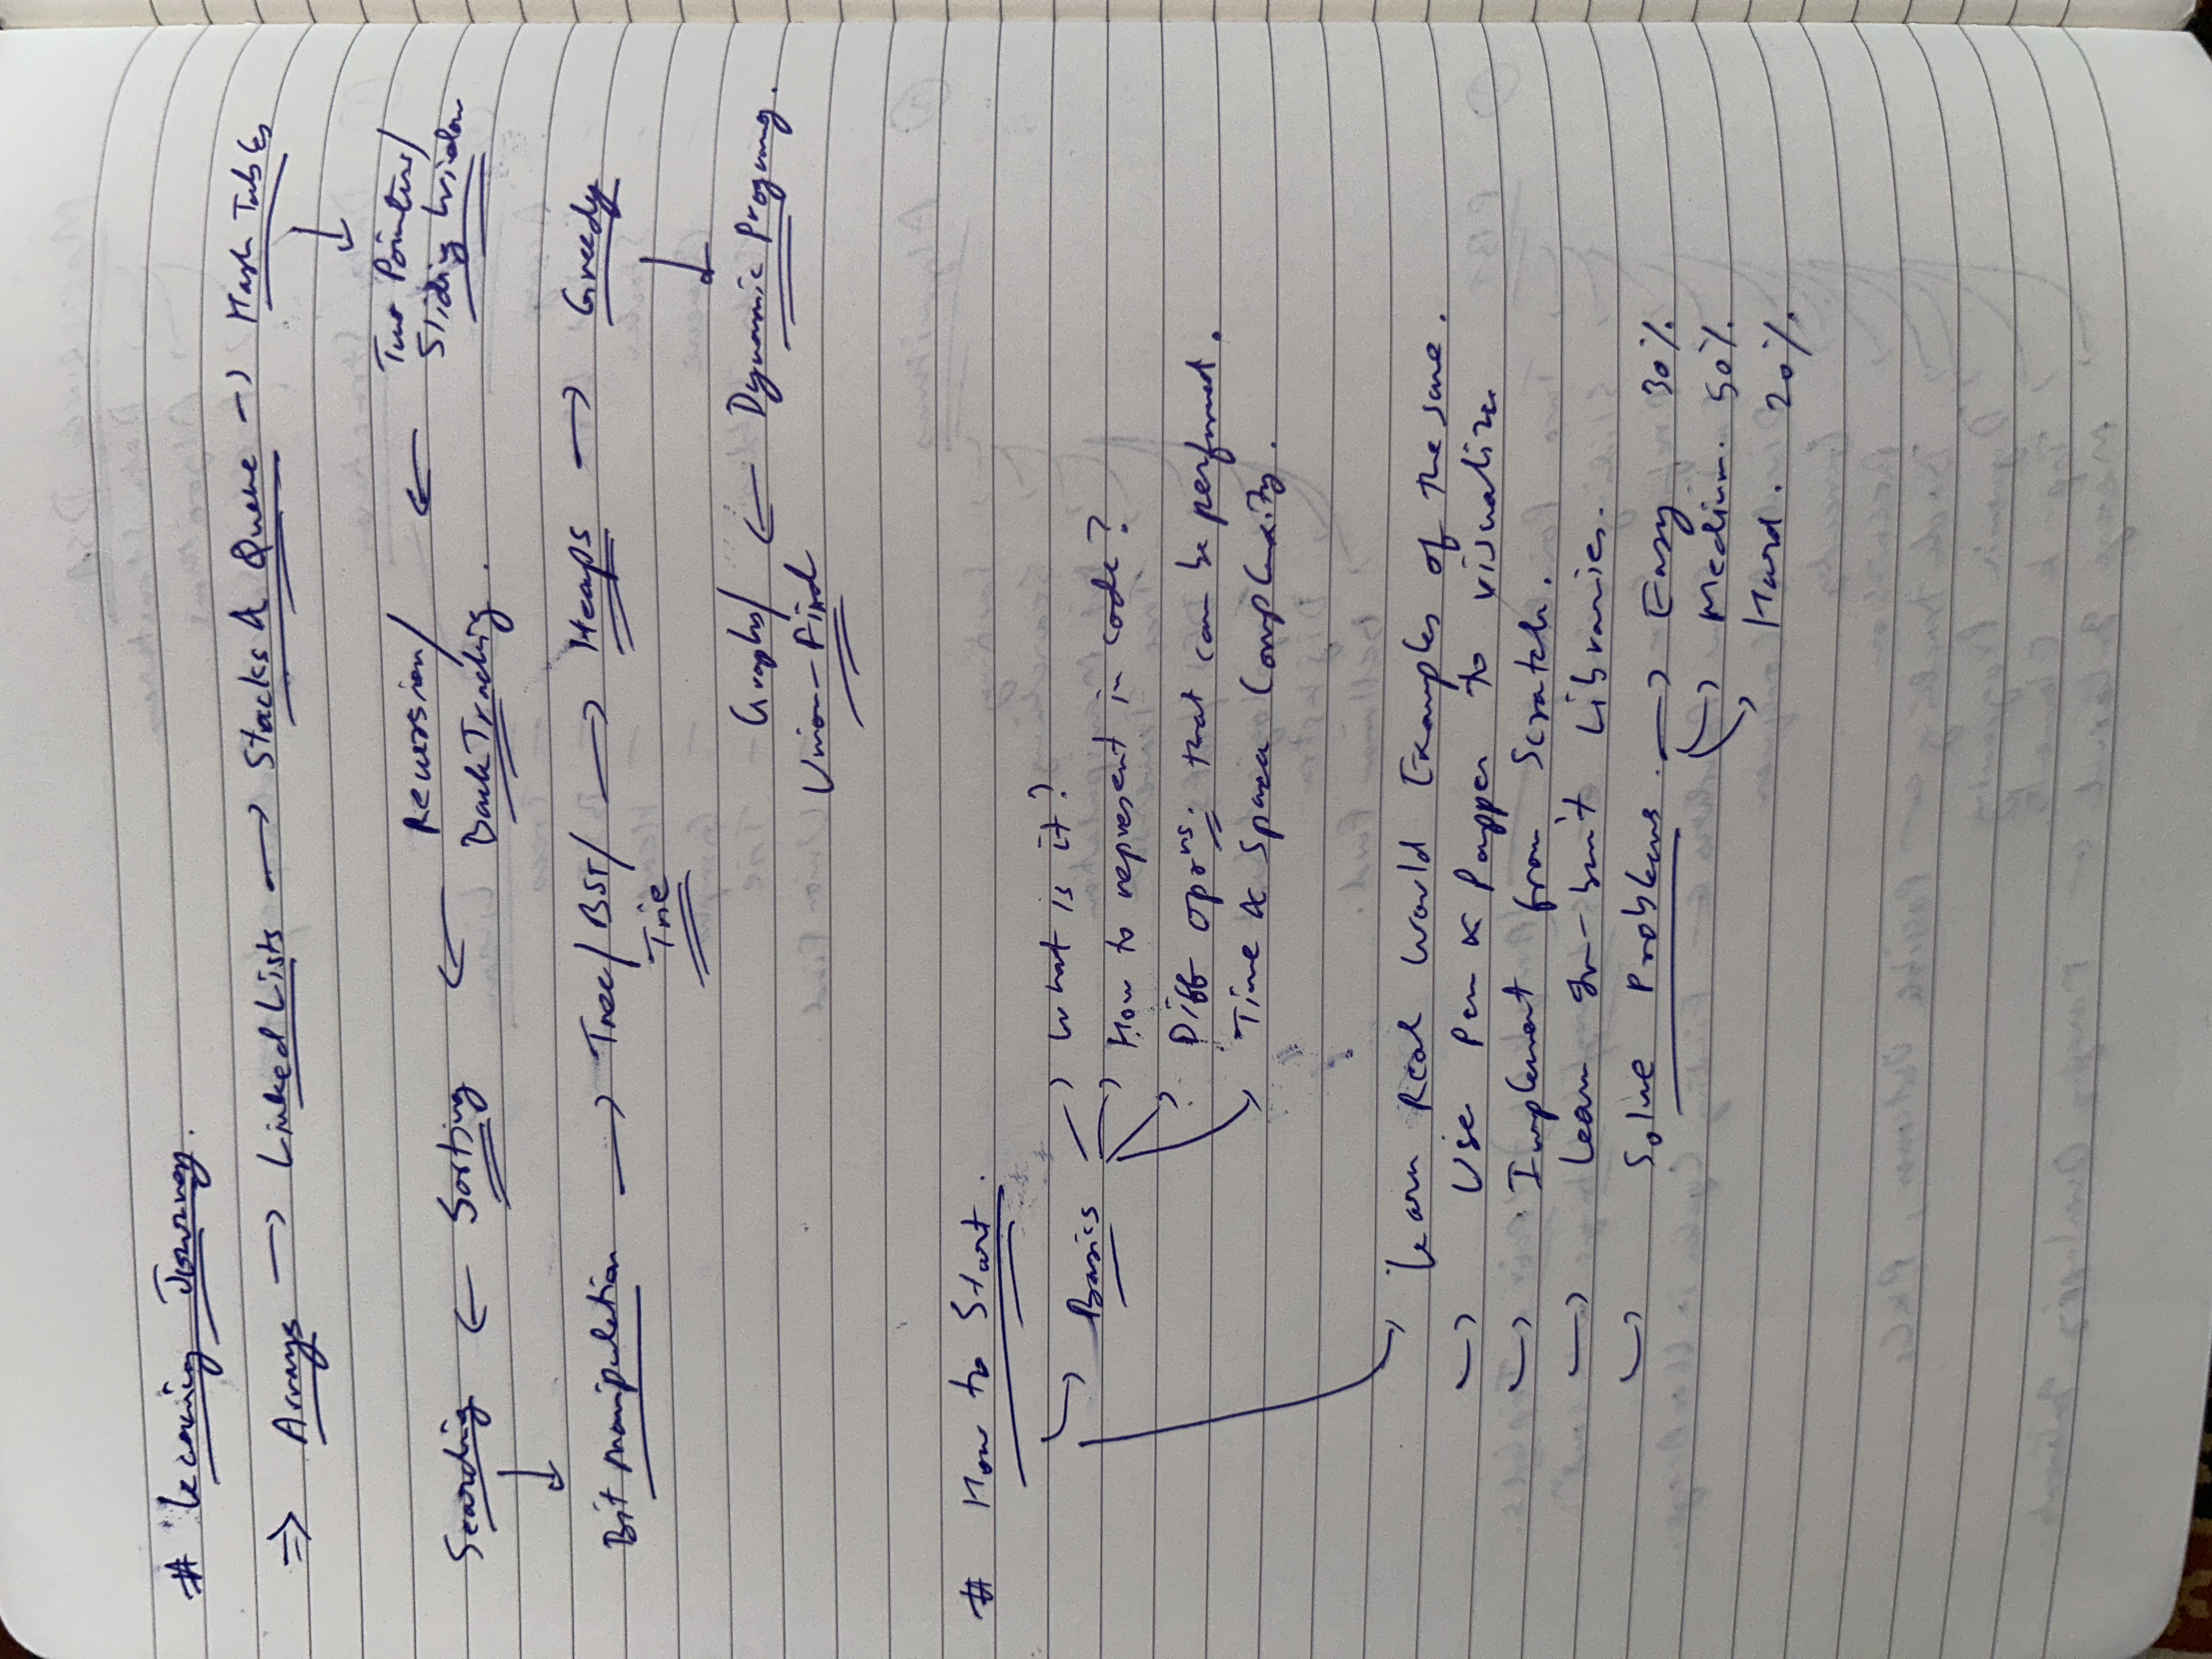 # Learning Journey.
⇒ Arrays → Linked Lists → Stacks & Queue → Hash Tables
↓
Searching ← Sorting ← Recursion/ ← Two Pointers/
BackTracking. Sliding Window
↓
Bit Manipulation → Tree/BST/ → Heaps → Greedy
Trie
↓
Graphs/ ← Dynamic Programing.
Union-Find
# How to Start.
→ Basics → What is it?
→ How to represent in code?
→ Diff oprns. that can be performed.
→ Time & Space Complexity.
→ Learn Real World Examples of the same.
→ Use Pen & Papper to visualize
→ Implement from Scratch.
→ Learn In-built Libraries.
→ Solve Problems. → Easy 30%.
→ Medium. 50%.
→ Hard. 20%.